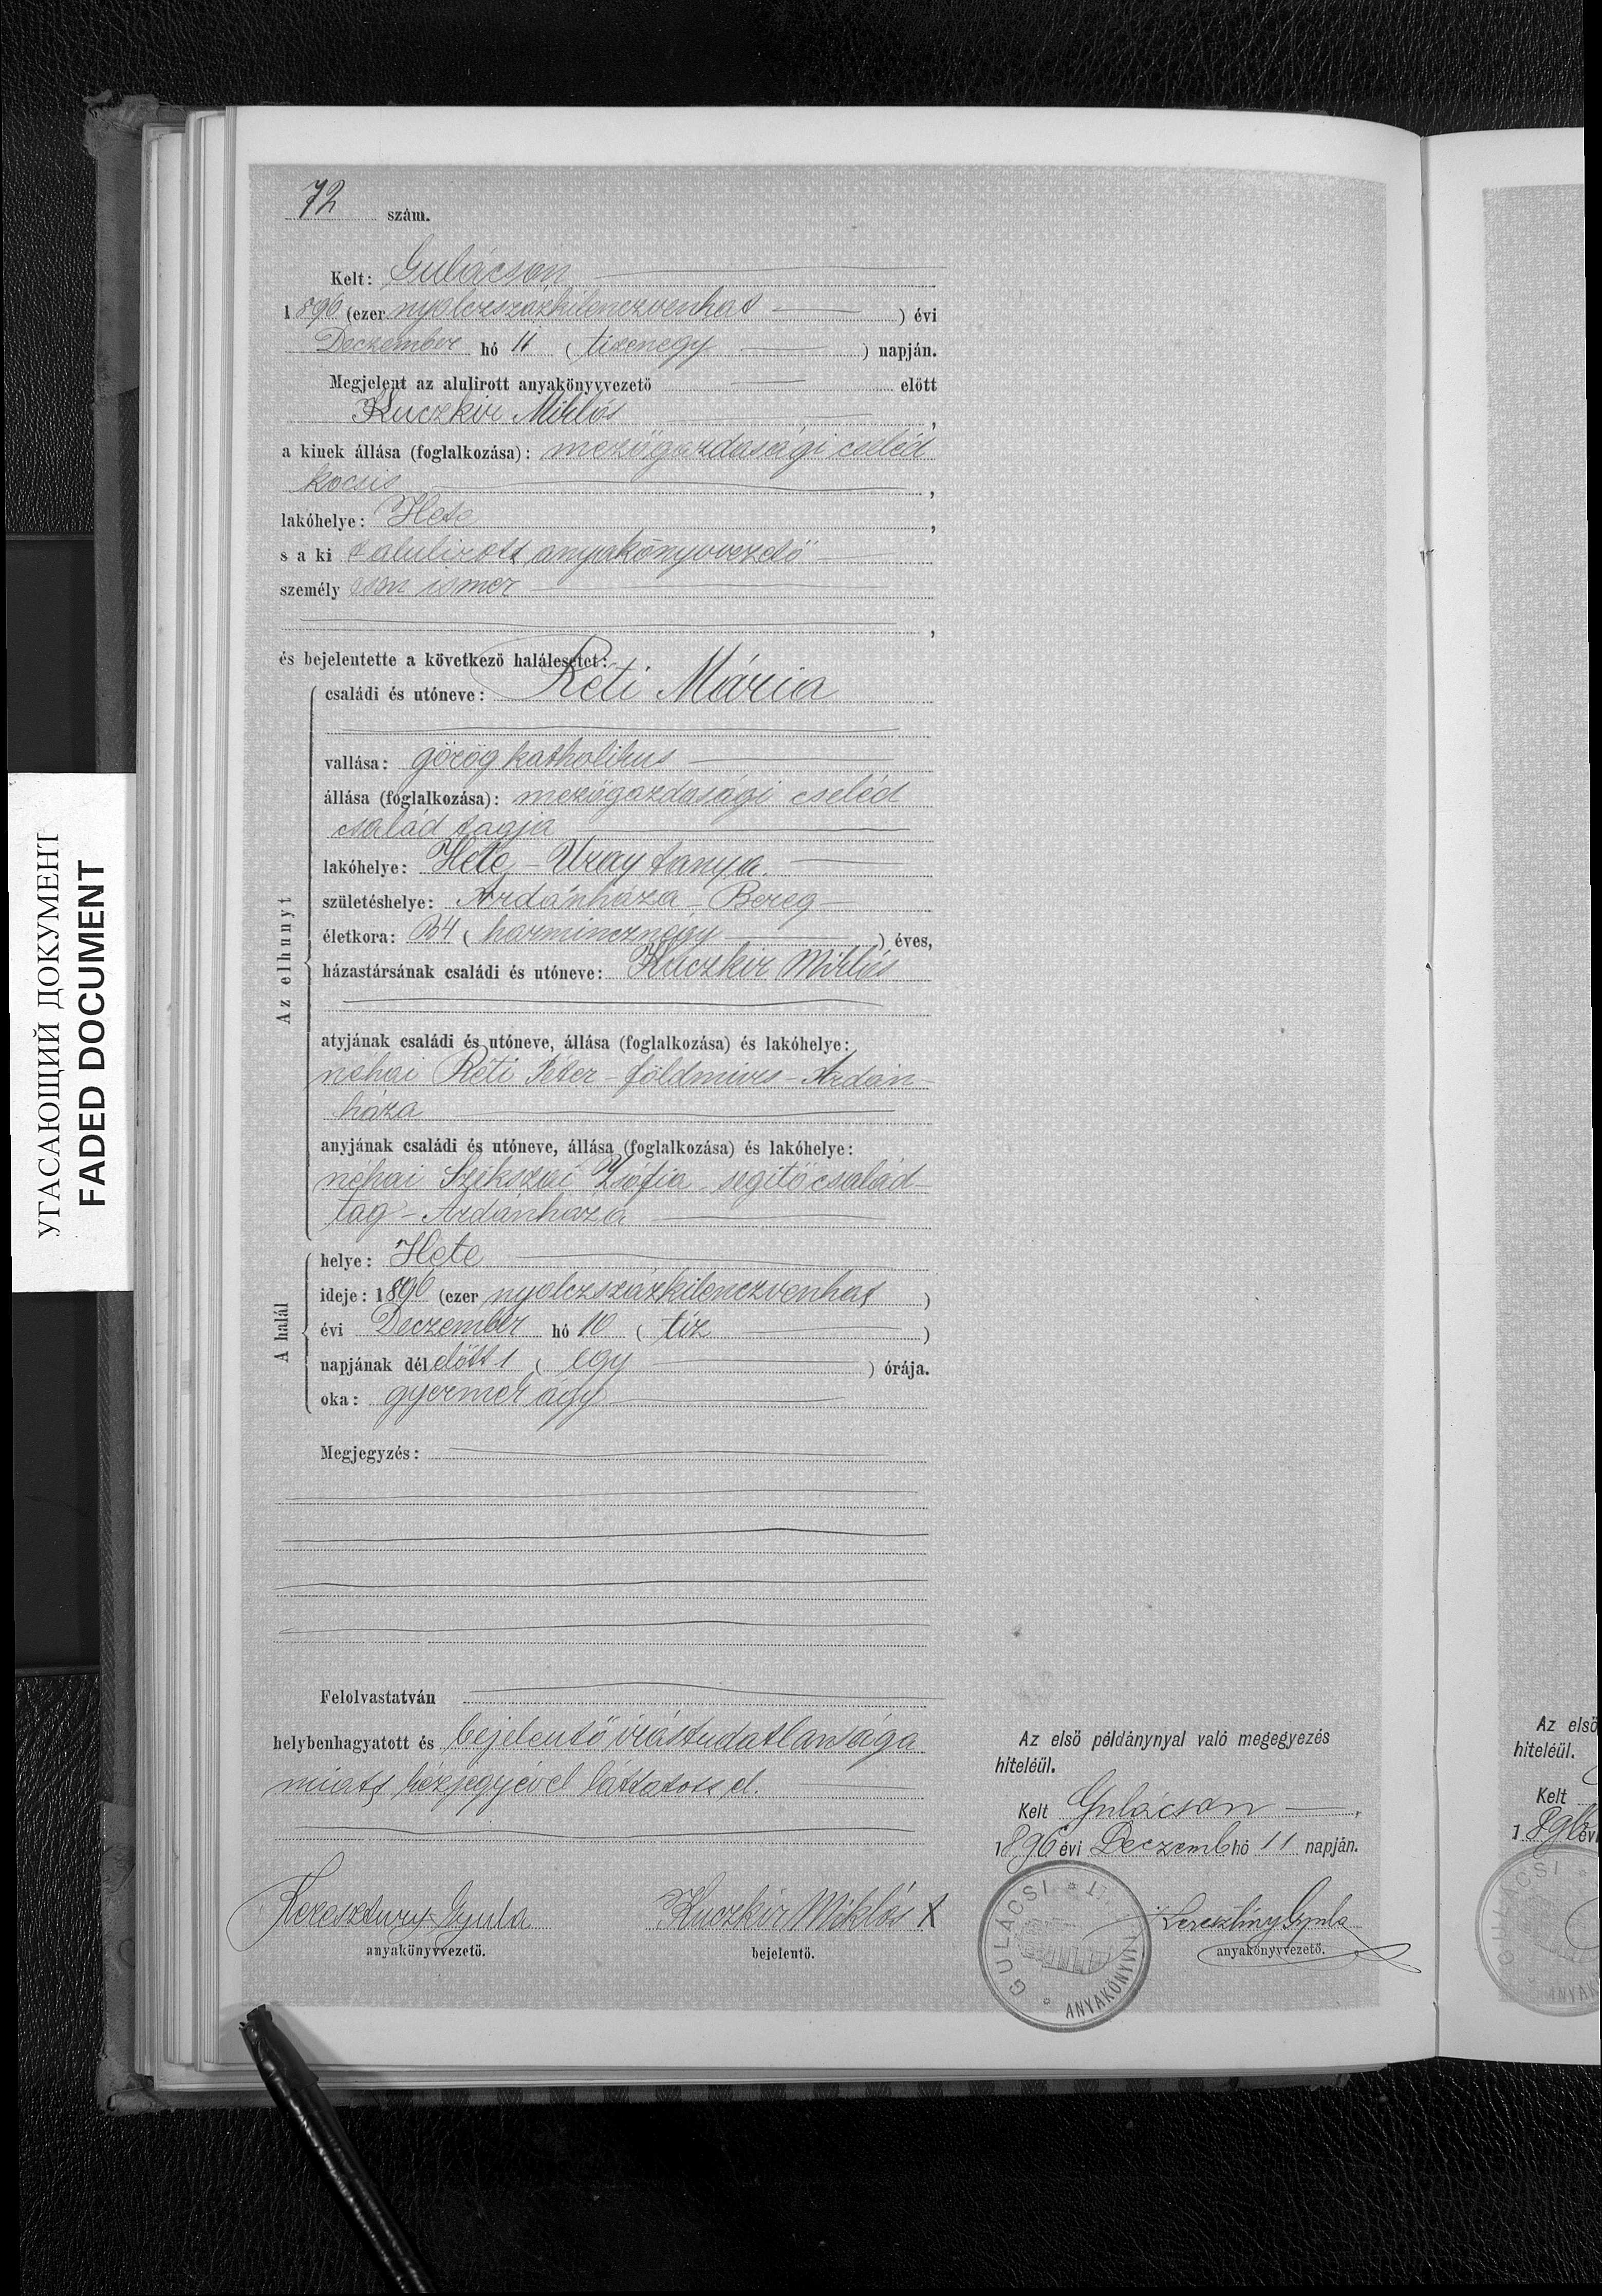 72 szám.
Kelt: Gulácson
1896 (ezer nyolczszázkilenczvenhat) évi
Deczember hó 11 (tizenegy) napján.
Megjelent az alulirott anyakönyvvezető előtt
Kuczkir Miklós,
a kinek állása (foglalkozása): mezőgazdasági cseléd
kocsis,
lakóhelye: Hete,
s a ki alulirott anyakönyvvezető
személy esen ismer
,
és bejelentette a következő halálesetet:
Az elhunyt
családi és utóneve: Réti Mária
vallása: görög katholikus
állása (foglalkozása): mezőgazdasági cseléd
család tagja
lakóhelye: Hete - Uray tanya.
születéshelye: Ardánháza - Bereg
életkora: 34 (harmincznégy) éves,
házastársának családi és utóneve: Kuczkir Miklós
atyjának családi és utóneve, állása (foglalkozása) és lakóhelye:
néhai Réti Péter - földmives - Ardán-
háza
anyjának családi és utóneve, állása (foglalkozása) és lakóhelye:
néhai Zsófia segitő család-
tag - Ardánháza
A halál
helye: Hete
ideje: 1896 (ezer nyolczszázkilenczvenhat)
évi Deczember hó 10 (tiz)
napjának délelőtt 1 (egy) órája.
oka: gyermek ágy
Megjegyzés:
Felolvastatván
helybenhagyatott és bejelentő irástudatlansága
miatt kézjegyével láttatott el.
Keresztury Gyula
anyakönyvvezető.
Kuczkir Miklós X
bejelentő.
Az első példánynyal való megegyezés
hiteléül.
Kelt Gulácson,
1896 évi Deczemb hó 11 napján.
Keresztury Gyula
anyakönyvvezető.
GULÁCSI
ANYAKÖNYVI
Az első
hiteléül.
Kelt
1896 évi
УГАСАЮЩИЙ ДОКУМЕНТ
FADED DOCUMENT